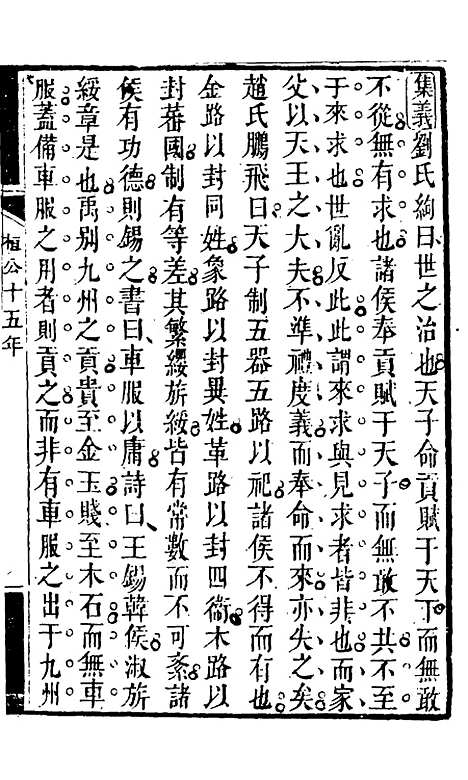 集義劉氏絢曰世之治也天子命貢賦于天下而無敢
不從無有求也諸侯奉貢賦于天子而無敢不共不至
于來求也世亂反此此謂來求與見求者皆非也而家
父以天王之大夫不準禮度義而奉命而來亦失之矣
趙氏鵬飛曰天子制五器五路以祀諸侯不得而有也
金路以封同姓象路以封異姓革路以封四衞木路以
封蕃國制有等差其繁纓旂綏皆有常數而不可紊諸
侯有功德則錫之書曰車服以庸詩曰王錫韓侯淑旂
綏章是也禹别九州之貢貴至金玉賤至木石而無車
服蓋備車服之用者則貢之而非有車服之出于九州
桓公十五年